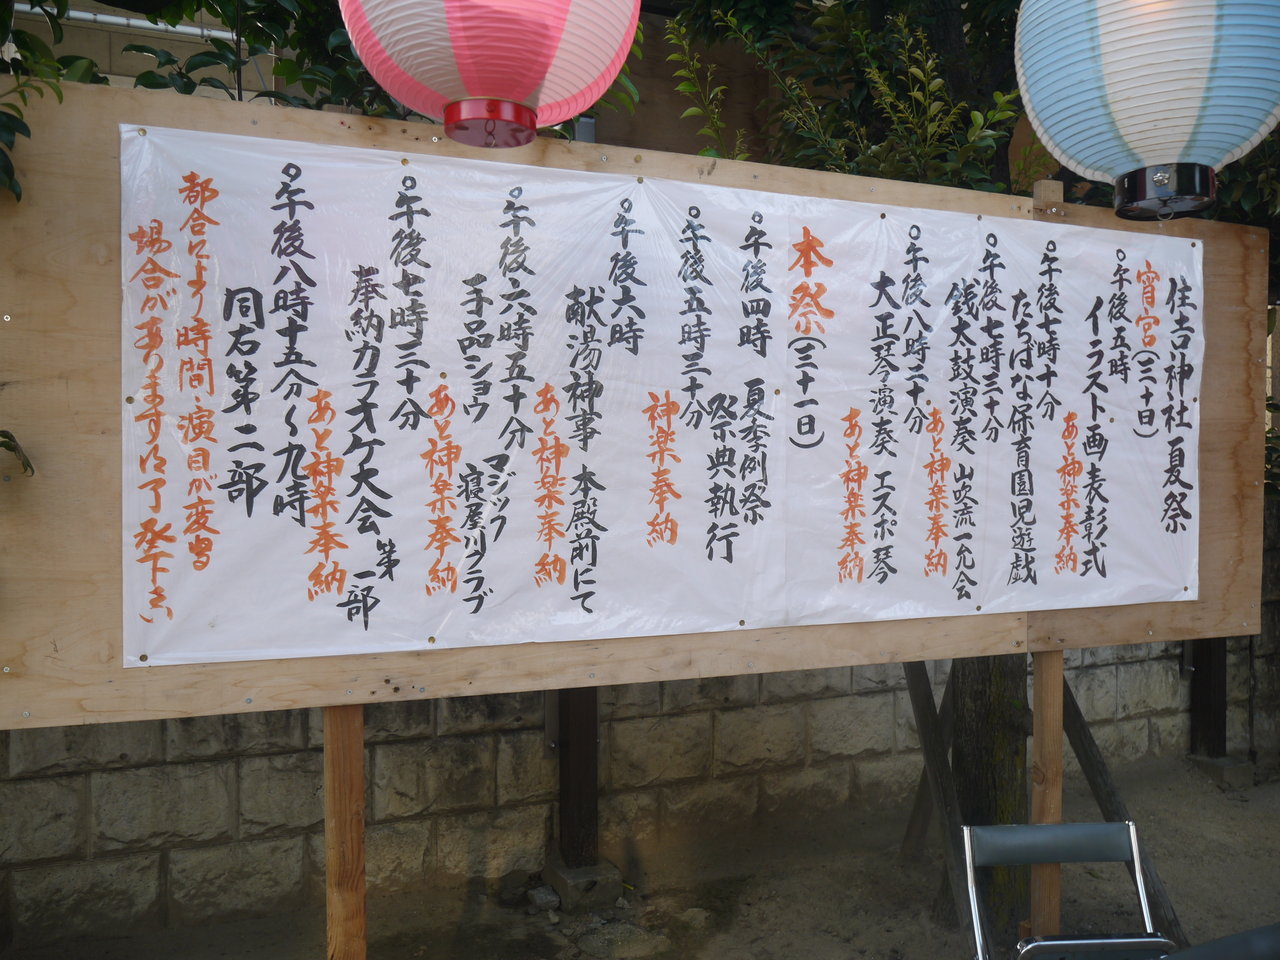 住吉神社 夏祭
宵宮(三十日)
○午後五時
イラスト画表彰式
あと神楽奉納
○午後七時十分
たちばな保育園児遊戯
○午後七時三十分
銭太鼓演奏 山吹流一允会
あと神楽奉納
○午後八時二十分
大正琴演奏 エスポ琴
あと神楽奉納
本祭(三十一日)
○午後四時 夏季例祭
祭典執行
○午後五時三十分
神楽奉納
○午後六時
献湯神事 本殿前にて
あと神楽奉納
○午後六時五十分
手品ショウ マジック寝屋川クラブ
あと神楽奉納
○午後七時三十分
奉納カラオケ大会 第一部
あと神楽奉納
○午後八時十五分~九時
同右第二部
都合により時間・演目が変る
場合がありますので了承下さい